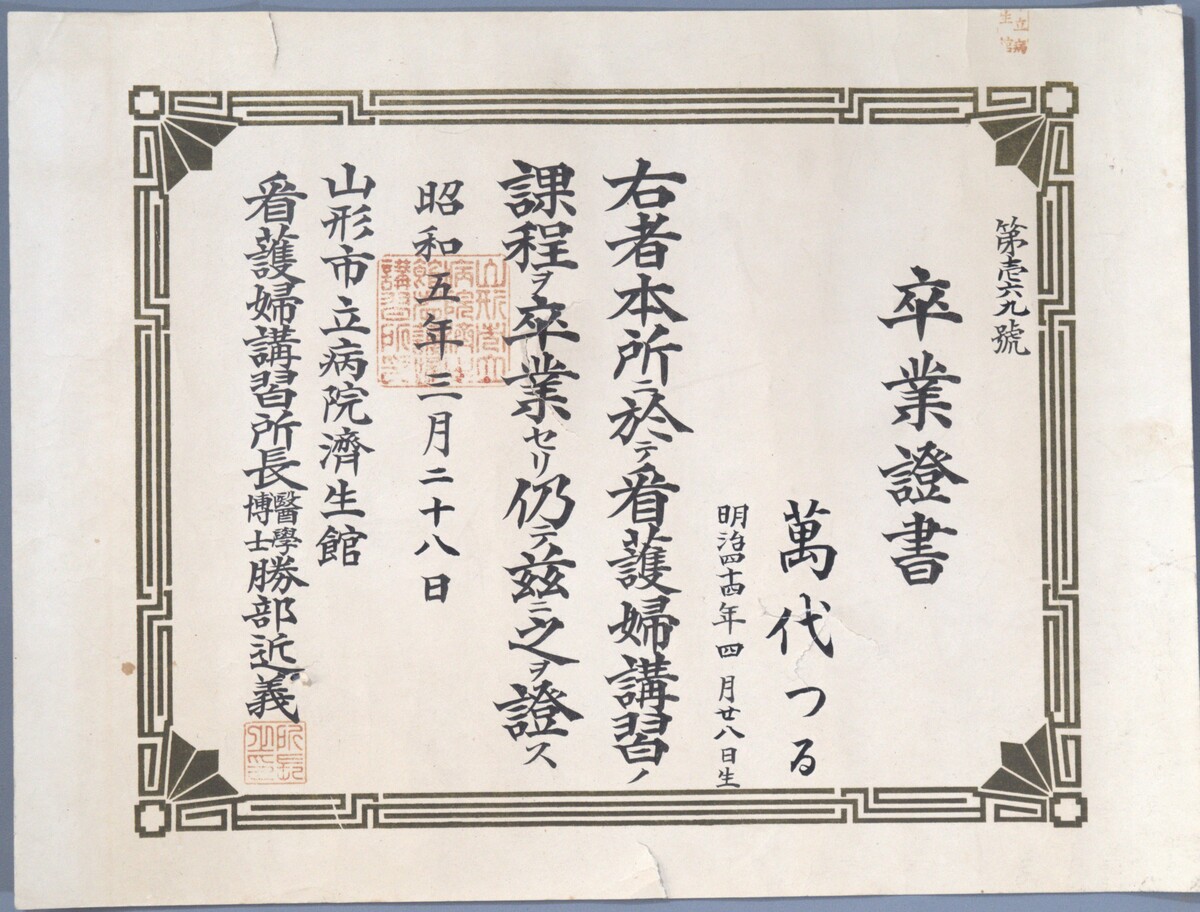 第壱六九號
卒業證書
萬代つる
明治四十四年四月廿八日生
右者本所ニ於テ看護婦講習ノ
課程ヲ卒業セリ仍テ茲ニ之ヲ證ス
昭和五年三月二十八日
山形市立病院濟生館
看護婦講習所長醫學博士勝部近義
所長之印